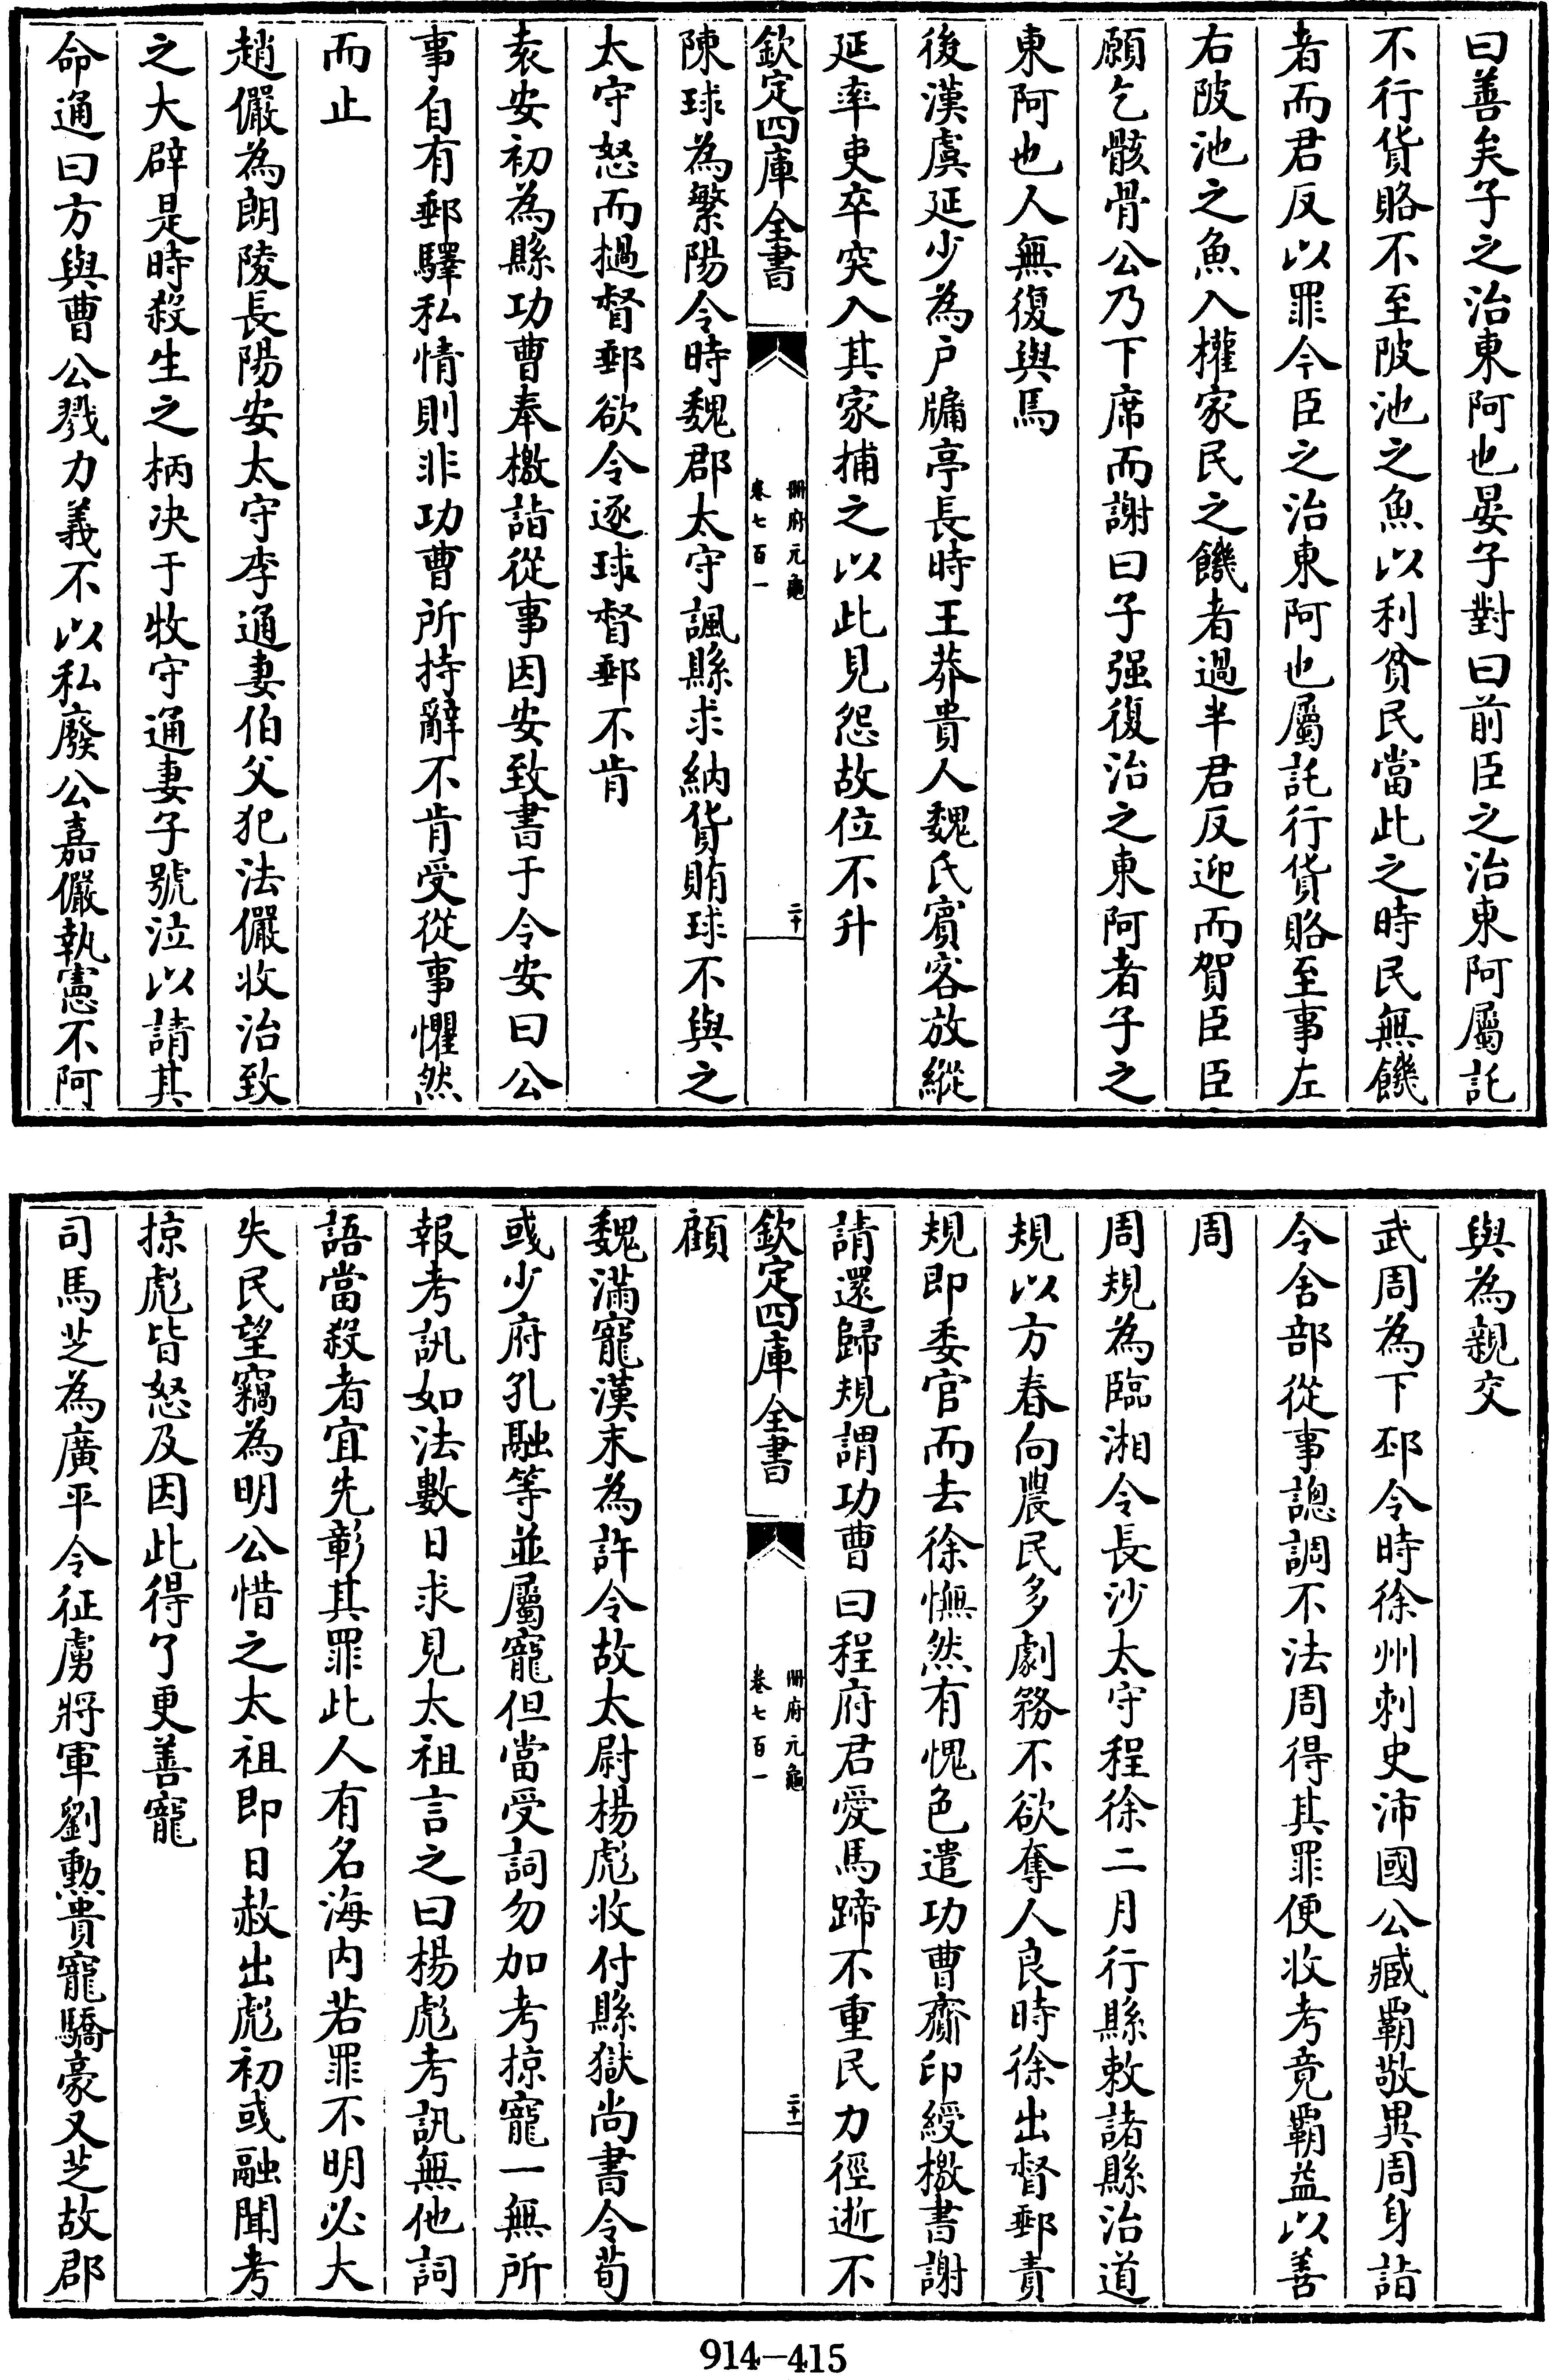 曰善矣子之治東阿也晏子對曰前臣之治東阿屬託
不行貨賂不至陂池之魚以利貧民當此之時民無饑
者而君反以罪今臣之治東阿也屬託行貨賂至事左
右陂池之魚入權家民之饑者過半君反迎而賀臣臣
願乞骸骨公乃下席而謝曰子强復治之東阿者子之
東阿也人無復與馬
後漢虞延少為户牖亭長時王莽貴人魏氏賓客放縱
延率吏卒突入其家捕之以此見怨故位不升
欽定四庫全書
冊府元龜
卷七百一
二十
陳球為繁陽令時魏郡太守諷縣求納貨賄球不與之
太守怒而撾督郵欲令逐球督郵不肯
袁安初為縣功曹奉檄詣從事因安致書于令安曰公
事自有郵驛私情則非功曹所持辭不肯受從事懼然
而止
趙儼為朗陵長陽安太守李通妻伯父犯法儼收治致
之大辟是時殺生之柄决于牧守通妻子號泣以請其
命通曰方與曹公戮力義不以私廢公嘉儼執憲不阿
與為親交
武周為下邳令時徐州刺史沛國公臧覇敬異周身詣
令舍部從事謥調不法周得其罪便收考竟覇益以善
周
周規為臨湘令長沙太守程徐二月行縣敕諸縣治道
規以方春向農民多劇務不欲奪人良時徐出督郵責
規即委官而去徐憮然有愧色遣功曹齎印綬檄書謝
請還歸規謂功曹曰程府君愛馬蹄不重民力徑逝不
欽定四庫全書
冊府元龜
卷七百一
二十一
顧
魏滿寵漢末為許令故太尉楊彪收付縣獄尚書令荀
彧少府孔融等並屬寵但當受詞勿加考掠寵一無所
報考訊如法數日求見太祖言之曰楊彪考訊無他詞
語當殺者宜先彰其罪此人有名海内若罪不明必大
失民望竊為明公惜之太祖即日赦出彪初彧融聞考
掠彪皆怒及因此得了更善寵
司馬芝為廣平令征虜將軍劉勲貴寵驕豪又芝故郡
914-415